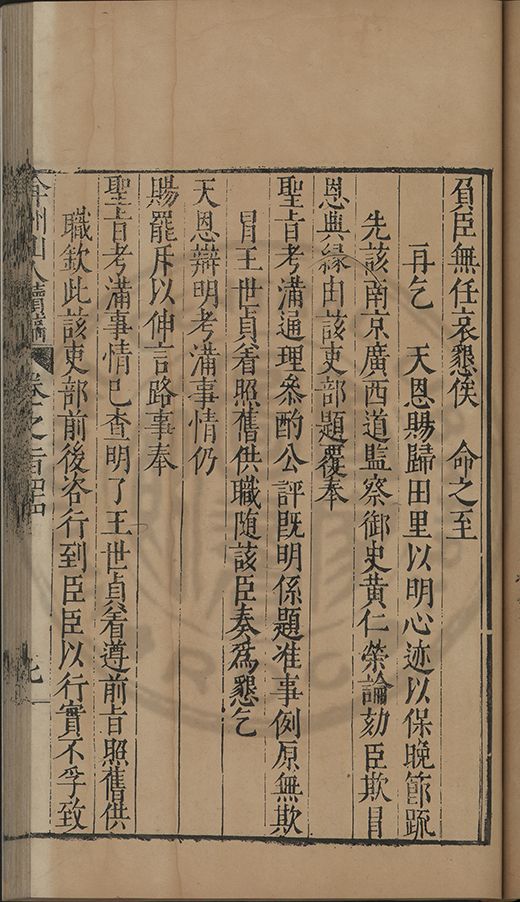 負臣無任哀懇俟　命之至
再乞　天恩賜歸田里以明心迹以保晚節疏
先該南京廣西道監察御史黃仁榮論劾臣欺冒
恩典緣由該吏部題覆奉
聖旨考滿通理參酌公評既明係題准事例原無欺
冒王世貞着照舊供職隨該臣奏爲懇乞
天恩辯明考滿事情仍
賜罷斥以伸言路事奉
聖旨考滿事情已查明了王世貞着遵前旨照舊供
職欽此該吏部前後咨行到臣臣以行實不孚致
弇州山人續稿　卷之一百四十四　七